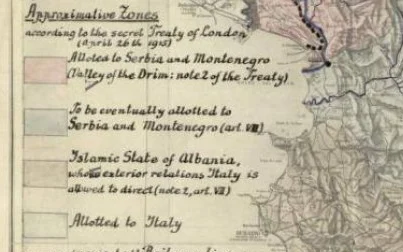 Approximative Zones
according to the secret Treaty of London
(April 26th 1915)
Alloted to Serbia and Montenegro
(Valley of the Drim: note 2 of the Treaty)
To be eventually allotted to
Serbia and Montenegro (art. VII)
Islamic State of Albania,
whose exterior relations Italy is
allowed to direct (note 2, art. VII)
Allotted to Italy